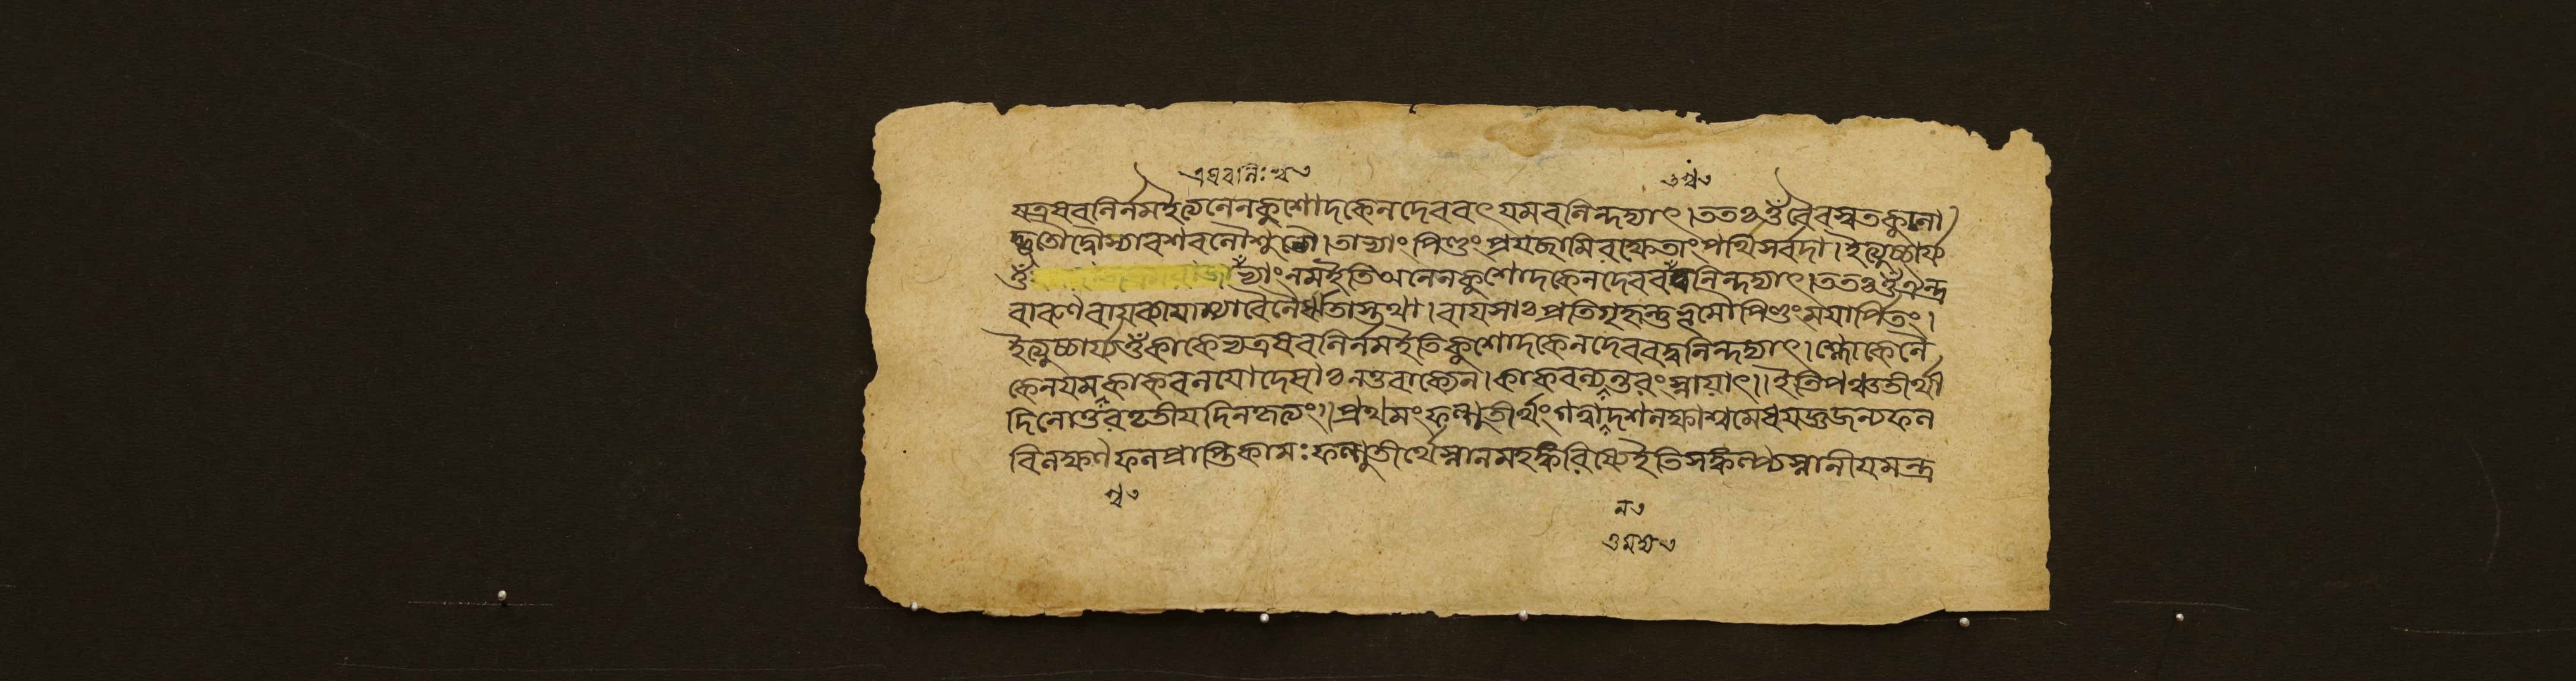 এষবলিঃ শ্ব৫
৩শ্ব৫
যত্রষবলির্নমইত্যনেনকুশোদকেনদেববৎ যমবলিন্দদ্যাৎ। ততঃ ওঁ বৈবস্বতকুলো
দ্ভুতৌদ্বৌশ্যাবশবলৌশুনৌ। তাভ্যাং পিণ্ডং প্রযচ্ছামিরক্ষেতাং পথিসর্বদা। ইত্যুচ্চার্য্য
ওঁ ভ্যাং নমইতিঅনেনকুশোদকেনদেবব লিন্দদ্যাৎ। ততঃ ওঁ ঐন্দ্র
বারুণবায়ব্যাযাম্যাবৈনৈরৃতাস্তথা। বায়সাঃ প্রতিগৃহ্নন্তু ভূমৌপিণ্ডং ময়ার্পিতং।
ইত্যুচ্চার্য্যওঁ কাকেভ্যএষবলির্নমইতিকুশোদকেনদেববদ্বলিন্দদ্যাৎ। শ্লোকেনৈ
কেনযমকাকবলযোদেয়াঃ নতুবাক্যেন। কাকবল্যন্তরং স্নায়াৎ।। ইতিপঞ্চতীর্থী
দিনোত্তরতৃতীয়দিনকৃত্যং।। প্রথমং ফল্গুতীর্থং গত্বা দশলক্ষাশ্বমেধযজ্ঞজন্যফল
বিলক্ষণফলপ্রাপ্তিকামঃ ফল্গুতীর্থেস্নানমহঙ্করিষ্যেইতিসঙ্কল্প্যস্নানীয়মন্ত্র
শ্ব৫
ল৫